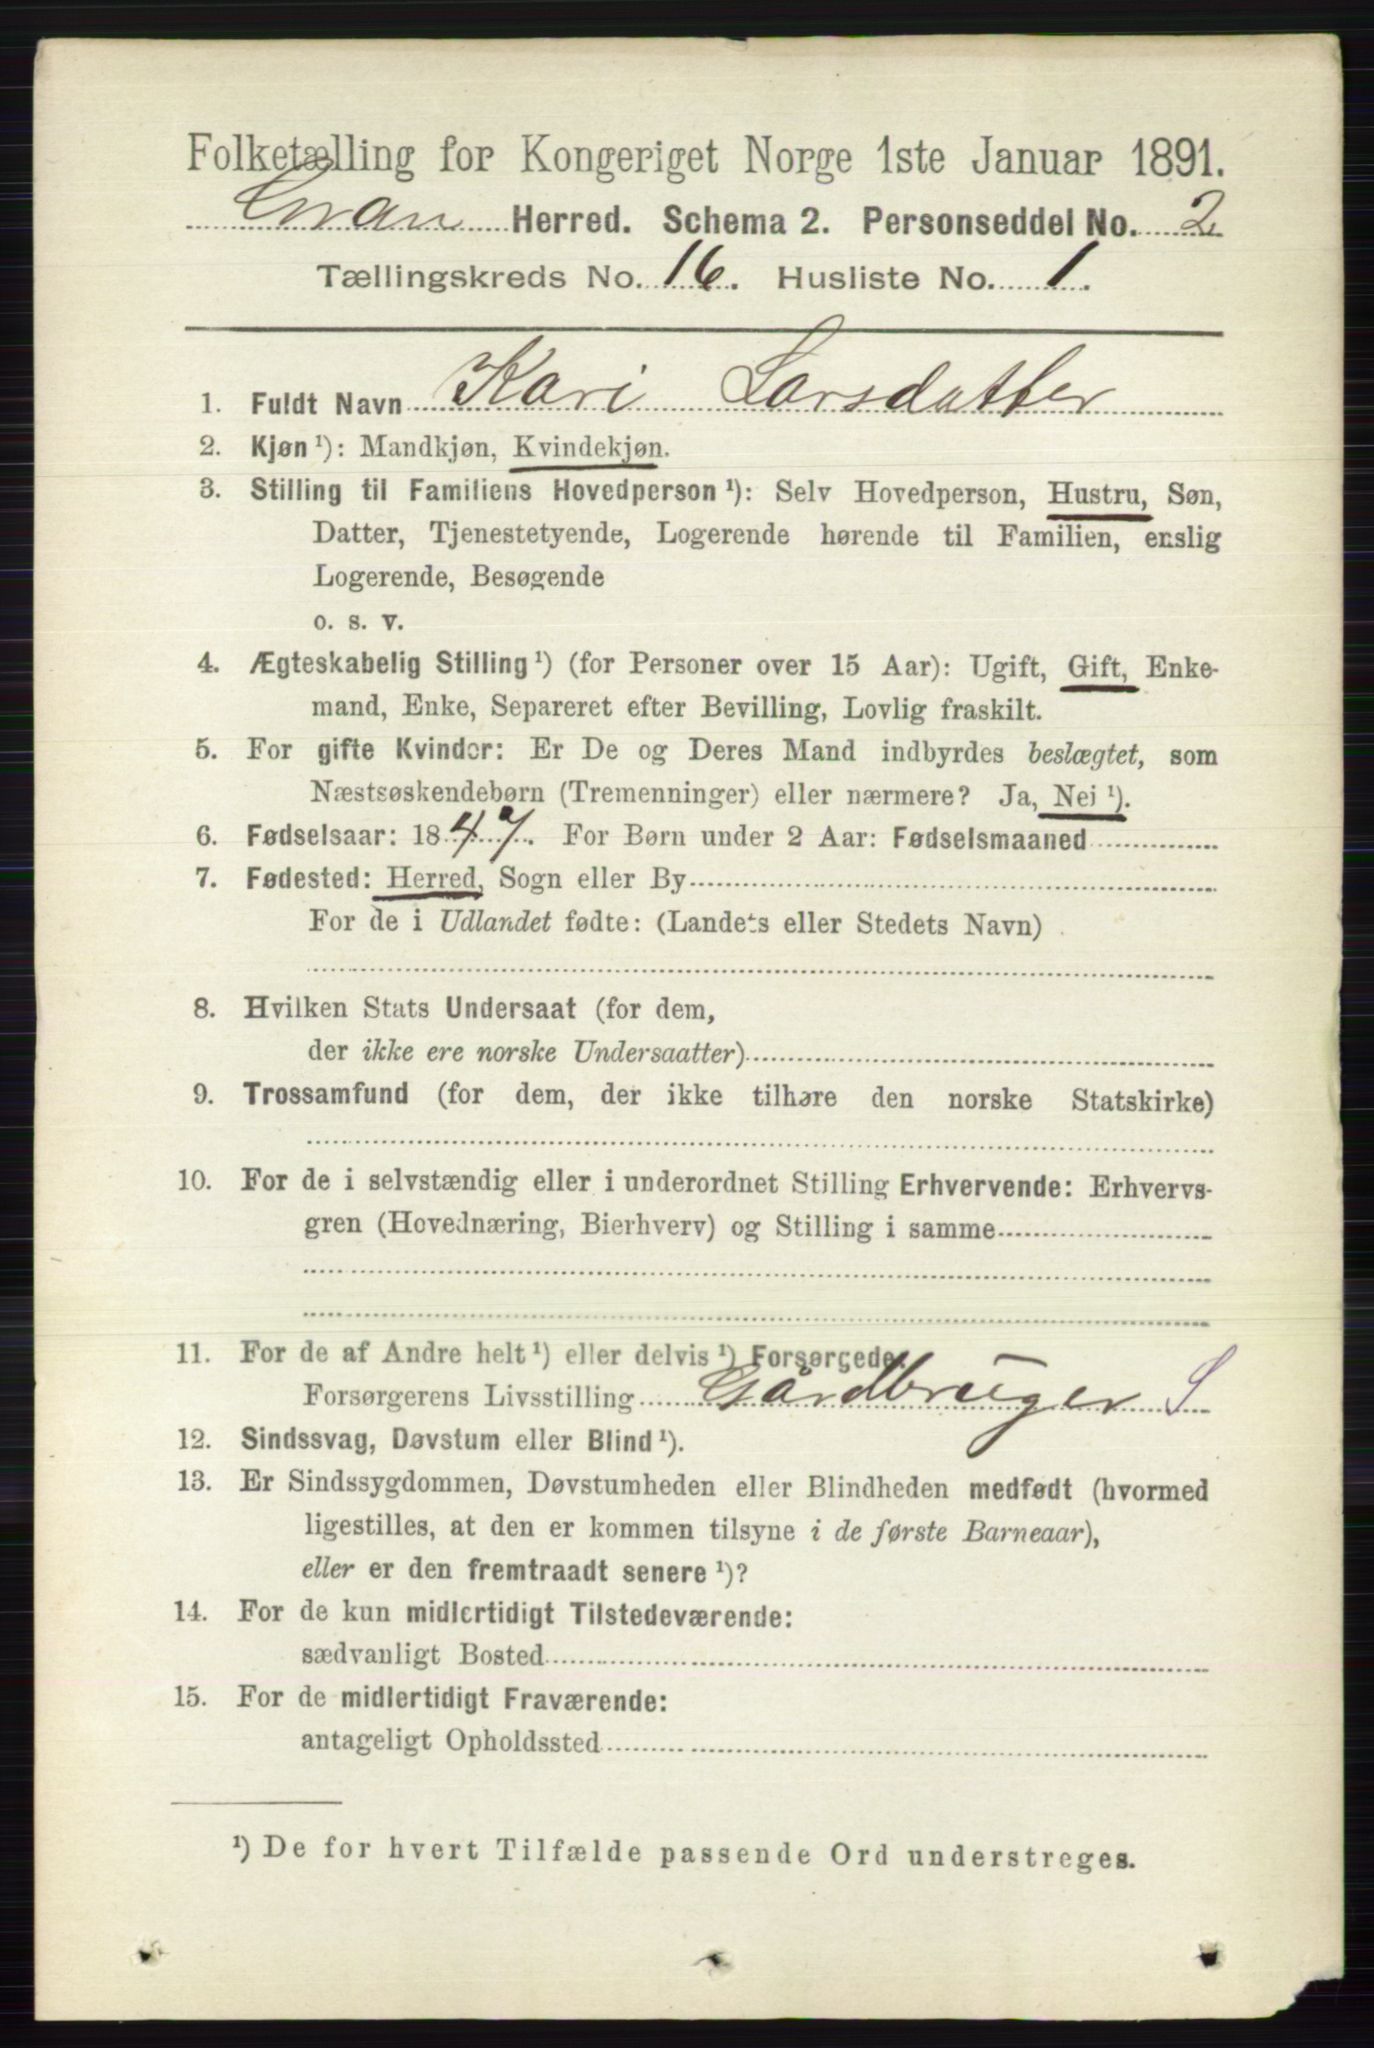 Folketælling for Kongeriget Norge 1ste Januar 1891.
Gran Herred. Schema 2. Personseddel No. 2
Tællingskreds No. 16. Husliste No. 1.
1. Fuldt Navn Kari Larsdatter
2. Kjøn ¹): Mandkjøn, Kvindekjøn.
3. Stilling til Familiens Hovedperson ¹): Selv Hovedperson, Hustru, Søn,
Datter, Tjenestetyende, Logerende hørende til Familien, enslig
Logerende, Besøgende
o. s. v.
4. Ægteskabelig Stilling ¹) (for Personer over 15 Aar): Ugift, Gift, Enke-
mand, Enke, Separeret efter Bevilling, Lovlig fraskilt.
5. For gifte Kvinder: Er De og Deres Mand indbyrdes beslægtet, som
Næstsøskendebørn (Tremenninger) eller nærmere? Ja, Nei ¹).
6. Fødselsaar: 1847. For Børn under 2 Aar: Fødselsmaaned
7. Fødested: Herred, Sogn eller By
For de i Udlandet fødte: (Landets eller Stedets Navn)
8. Hvilken Stats Undersaat (for dem,
der ikke ere norske Undersaatter)
9. Trossamfund (for dem, der ikke tilhøre den norske Statskirke)
10. For de i selvstændig eller i underordnet Stilling Erhvervende: Erhvervs-
gren (Hovednæring, Bierhverv) og Stilling i samme
11. For de af Andre helt ¹) eller delvis ¹) Forsørgede:
Forsørgerens Livsstilling Gårdbruger S
12. Sindssvag, Døvstum eller Blind ¹).
13. Er Sindssygdommen, Døvstumheden eller Blindheden medfødt (hvormed
ligestilles, at den er kommen tilsyne i de første Barneaar),
eller er den fremtraadt senere ¹)?
14. For de kun midlertidigt Tilstedeværende:
sædvanligt Bosted
15. For de midlertidigt Fraværende:
antageligt Opholdssted
¹) De for hvert Tilfælde passende Ord understreges.